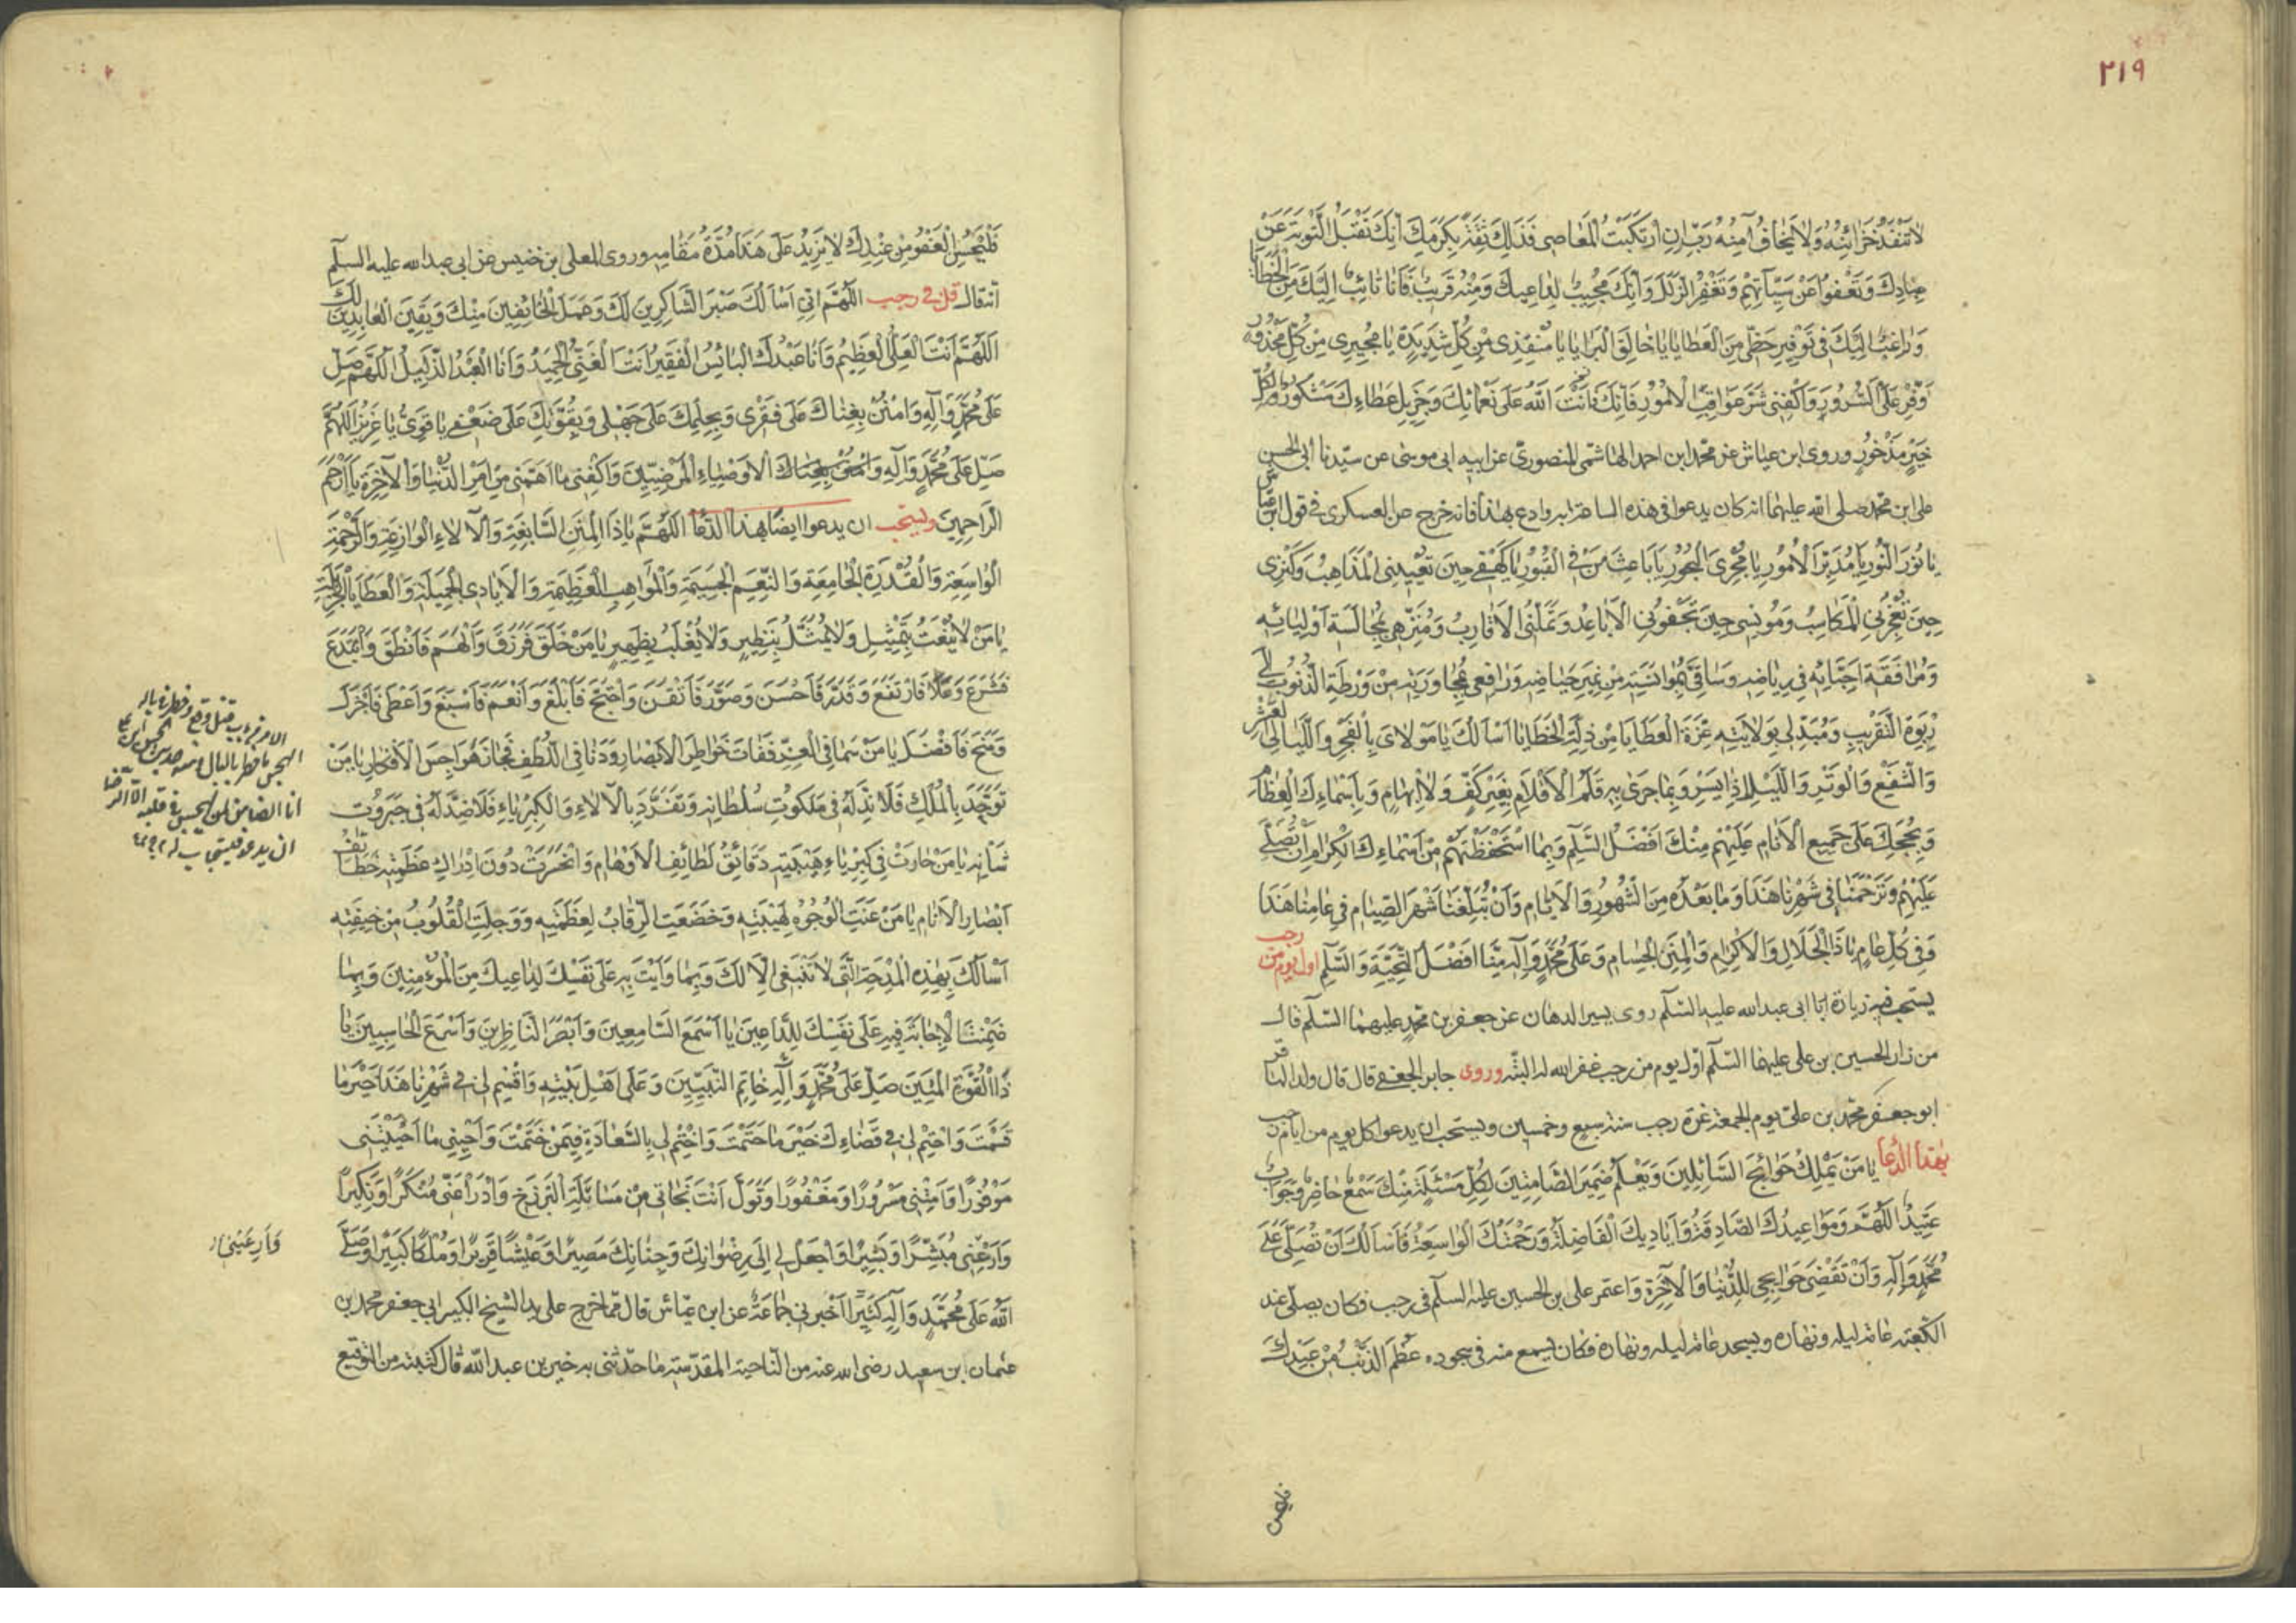 ٢١٩
لَا تَنْفَدُ خَزَائِنُهُ وَلَا يَخَافُ آمِنُهُ رَبِّ إِنِ ارْتَكَبْتُ الْمَعَاصِىَ فَذَلِكَ ثِقَةٌ بِكَرَمِكَ أَنَّكَ تَقْبَلُ التَّوْبَةَ عَنْ
عِبَادِكَ وَتَعْفُوا عَنْ سَيِّآتِهِمْ وَتَغْفِرُ الزَّلَلَ وَأَنَّكَ مُجِيبٌ لِدَاعِيكَ وَمِنْهُ قَرِيبٌ فَأَنَا تَائِبٌ إِلَيْكَ مِنَ الْخَطَايَا
وَرَاغِبٌ إِلَيْكَ فِى تَوْفِيرِ حَظِّى مِنَ الْعَطَايَا يَا خَالِقَ الْبَرَايَا يَا مُنْقِذِى مِنْ كُلِّ شَدِيدَةٍ يَا مُجِيرِى مِنْ كُلِّ مَحْذُورٍ
وَفِّرْ عَلَىَّ السُّرُورَ وَاكْفِنِى شَرَّ عَوَاقِبِ الْأُمُورِ فَإِنَّكَ فَأَنْتَ اللّٰهُ عَلَى نَعْمَائِكَ وَجَزِيلِ عَطَاءِكَ مَشْكُورٌ وَلِكُلِّ
خَيْرٍ مَذْخُورٌ وروى ابن عياش عن محمد ابن احمد الهاشمى المنصورى عن ابيه ابى موسى عن سيدنا ابى الحسن
على ابن محمد صلى الله عليهما انه كان يدعوا فى هذه الساعة به وادع بهذا فانه خرج عن العسكرى فى قول ابن عياش
يَا نُورَ النُّورِ يَا مُدَبِّرَ الْأُمُورِ يَا مُجْرِىَ الْبُحُورِ يَا بَاعِثَ مَنْ فِى الْقُبُورِ يَا كَهْفِى حِينَ تُعْيِينِى الْمَذَاهِبُ وَكَنْزِى
حِينَ تُعْجِزُنِى الْمَكَاسِبُ وَمُونِسِى حِينَ تَجْفُونِى الْأَبَاعِدُ وَتَمَلُّنِى الْأَقَارِبُ وَمُنَزِّهِى بِمُجَالَسَةِ أَوْلِيَائِهِ
وَمُرَافَقَةِ أَحِبَّائِهِ فِى رِيَاضِهِ وَسَاقِىَّ بِمُوَانَسَتِهِ مِنْ نَمِيرِ حِيَاضِهِ وَرَافِعِى بِمُجَاوَرَتِهِ مِنْ وَرْطَةِ الذُّنُوبِ إِلَى
رَبْوَةِ التَّقْرِيبِ وَمُبَدِّلِى بِوِلَايَتِهِ عِزَّةَ الْعَطَايَا مِنْ ذِلَّةِ الْخَطَايَا أَسْأَلُكَ يَا مَوْلَاىَ بِالْفَجْرِ وَاللَّيَالِى الْعَشْرِ
وَالشَّفْعِ وَالْوَتْرِ وَاللَّيْلِ إِذَا يَسْرِ وَبِمَا جَرَى بِهِ قَلَمُ الْأَقْلَامِ بِغَيْرِ كَفٍّ وَلَا إِبْهَامٍ وَبِأَسْمَاءِكَ الْعِظَامِ
وَبِحُجَجِكَ عَلَى جَمِيعِ الْأَنَامِ عَلَيْهِمْ مِنْكَ أَفْضَلُ السَّلَامِ وَبِمَا اسْتَحْفَظْتَهُمْ مِنْ أَسْمَاءِكَ الْكِرَامِ أَنْ تُصَلِّىَ
عَلَيْهِمْ وَتَرْحَمَنَا فِى شَهْرِنَا هَذَا وَمَا بَعْدَهُ مِنَ الشُّهُورِ وَالْأَيَّامِ وَأَنْ تُبَلِّغَنَا شَهْرَ الصِّيَامِ فِى عَامِنَا هَذَا
وَفِى كُلِّ عَامٍ يَا ذَا الْجَلَالِ وَالْإِكْرَامِ وَالْمِنَنِ الْجِسَامِ وَعَلَى مُحَمَّدٍ وَآلِهِ مِنَّا أَفْضَلُ التَّحِيَّةِ وَالسَّلَامِ اول يوم من رجب
يستحب فيه زيارة ابا ابى عبد الله عليه السلام روى بسير الدهان عن جعفر بن محمد عليهما السلام قال
من زار الحسين بن على عليهما السلام اول يوم من رجب غفر الله له البتة وروى جابر الجعفى قال قال ولد الباقر
ابو جعفر محمد بن على يوم الجمعة غرة رجب سنة سبع وخمسين ويستحب ان يدعوا كل يوم من ايام رجب
بهذا الدعا يَا مَنْ يَمْلِكُ حَوَائِجَ السَّائِلِينَ وَيَعْلَمُ ضَمِيرَ الصَّامِتِينَ لِكُلِّ مَسْئَلَةٍ مِنْكَ سَمْعٌ حَاضِرٌ وَجَوَابٌ
عَتِيدٌ اللّٰهُمَّ وَمَوَاعِيدُكَ الصَّادِقَةُ وَأَيَادِيكَ الْفَاضِلَةُ وَرَحْمَتُكَ الْوَاسِعَةُ فَأَسْأَلُكَ أَنْ تُصَلِّىَ عَلَى
مُحَمَّدٍ وَآلِهِ وَأَنْ تَقْضِىَ حَوَايِجِى لِلدُّنْيَا وَالْآخِرَةِ وَاعتمر على بن الحسين عليه السلام فى رجب فكان يصلى عند
الكعبة عامة ليله ونهاره ويسجد عامة ليله ونهاره فكان يسمع منه فى سجوده عَظُمَ الذَّنْبُ مِنْ عَبْدِكَ
فَلْيَحْسُنِ الْعَفْوُ مِنْ عِنْدِكَ لَا يَزِيدُ عَلَى هَذَا مُدَّةَ مَقَامِهِ وروى المعلى بن خنيس عن ابى عبد الله عليه السلام
انه قال قل فى رجب اللّٰهُمَّ إِنِّى أَسْأَلُكَ صَبْرَ الشَّاكِرِينَ لَكَ وَعَمَلَ الْخَائِفِينَ مِنْكَ وَيَقِينَ الْعَابِدِينَ لَكَ
اللّٰهُمَّ أَنْتَ الْعَلِىُّ الْعَظِيمُ وَأَنَا عَبْدُكَ الْبَائِسُ الْفَقِيرُ أَنْتَ الْغَنِىُّ الْحَمِيدُ وَأَنَا الْعَبْدُ الذَّلِيلُ اللّٰهُمَّ صَلِّ
عَلَى مُحَمَّدٍ وَآلِهِ وَامْنُنْ بِغِنَاكَ عَلَى فَقْرِى وَبِحِلْمِكَ عَلَى جَهْلِى وَبِقُوَّتِكَ عَلَى ضَعْفِى يَا قَوِىُّ يَا عَزِيزُ اللّٰهُمَّ
صَلِّ عَلَى مُحَمَّدٍ وَآلِهِ الْأَوْصِيَاءِ الْمَرْضِيِّينَ وَاكْفِنِى مَا أَهَمَّنِى مِنْ أَمْرِ الدُّنْيَا وَالْآخِرَةِ يَا أَرْحَمَ
الرَّاحِمِينَ ويستحب ان يدعوا ايضا بهذا الدعا اللّٰهُمَّ يَا ذَا الْمِنَنِ السَّابِغَةِ وَالْآلَاءِ الْوَازِعَةِ وَالرَّحْمَةِ
الْوَاسِعَةِ وَالْقُدْرَةِ الْجَامِعَةِ وَالنِّعَمِ الْجَسِيمَةِ وَالْمَوَاهِبِ الْعَظِيمَةِ وَالْأَيَادِى الْجَمِيلَةِ وَالْعَطَايَا الْجَزِيلَةِ
يَا مَنْ لَا يُنْعَتُ بِتَمْثِيلٍ وَلَا يُمَثَّلُ بِنَظِيرٍ وَلَا يُغْلَبُ بِظَهِيرٍ يَا مَنْ خَلَقَ فَرَزَقَ وَأَلْهَمَ فَأَنْطَقَ وَابْتَدَعَ
فَشَرَعَ وَعَلَا فَارْتَفَعَ وَقَدَّرَ فَأَحْسَنَ وَصَوَّرَ فَأَتْقَنَ وَاحْتَجَّ فَأَبْلَغَ وَأَنْعَمَ فَأَسْبَغَ وَأَعْطَى فَأَجْزَلَ
وَمَنَحَ فَأَفْضَلَ يَا مَنْ سَمَا فِى الْعِزِّ فَفَاتَ خَوَاطِرَ الْأَبْصَارِ وَدَنَا فِى اللُّطْفِ فَجَازَ هَوَاجِسَ الْأَفْكَارِ يَا مَنْ
تَوَحَّدَ بِالْمُلْكِ فَلَا نِدَّ لَهُ فِى مَلَكُوتِ سُلْطَانِهِ وَتَفَرَّدَ بِالْآلَاءِ وَالْكِبْرِيَاءِ فَلَا ضِدَّ لَهُ فِى جَبَرُوتِ
شَأْنِهِ يَا مَنْ حَارَتْ فِى كِبْرِيَاءِ هَيْبَتِهِ دَقَائِقُ لَطَائِفِ الْأَوْهَامِ وَانْحَسَرَتْ دُونَ إِدْرَاكِ عَظَمَتِهِ خَطَائِفُ
أَبْصَارِ الْأَنَامِ يَا مَنْ عَنَتِ الْوُجُوهُ لِهَيْبَتِهِ وَخَضَعَتِ الرِّقَابُ لِعَظَمَتِهِ وَوَجِلَتِ الْقُلُوبُ مِنْ خِيفَتِهِ
أَسْأَلُكَ بِهَذِهِ الْمِدْحَةِ الَّتِى لَا تَنْبَغِى إِلَّا لَكَ وَبِمَا وَأَيْتَ بِهِ عَلَى نَفْسِكَ لِدَاعِيكَ مِنَ الْمُؤْمِنِينَ وَبِمَا
ضَمِنْتَ الْإِجَابَةَ فِيهِ عَلَى نَفْسِكَ لِلدَّاعِينَ يَا أَسْمَعَ السَّامِعِينَ وَأَبْصَرَ النَّاظِرِينَ وَأَسْرَعَ الْحَاسِبِينَ يَا
ذَا الْقُوَّةِ الْمَتِينَ صَلِّ عَلَى مُحَمَّدٍ وَآلِهِ خَاتَمِ النَّبِيِّينَ وَعَلَى أَهْلِ بَيْتِهِ وَاقْسِمْ لِى فِى شَهْرِنَا هَذَا خَيْرَ مَا
قَسَمْتَ وَاحْتِمْ لِى فِى قَضَاءِكَ خَيْرَ مَا حَتَمْتَ وَاخْتِمْ لِى بِالسَّعَادَةِ فِيمَنْ خَتَمْتَ وَأَحْيِنِى مَا أَحْيَيْتَنِى
مَوْفُورًا وَأَمِتْنِى مَسْرُورًا وَمَغْفُورًا وَتَوَلَّ أَنْتَ نَجَاتِى مِنْ مَسَائَلَةِ الْبَرْزَخِ وَادْرَأْ عَنِّى مُنْكَرًا وَنَكِيرًا
وَأَرِعَيْنِى مُبَشِّرًا وَبَشِيرًا وَاجْعَلْ لِى إِلَى رِضْوَانِكَ وَجِنَانِكَ مَصِيرًا وَعَيْشًا قَرِيرًا وَمُلْكًا كَبِيرًا وَصَلَّى
اللّٰهُ عَلَى مُحَمَّدٍ وَآلِهِ كَثِيرًا أخبرنى جماعة عن ابن عياش قال مما خرج على يد الشيخ الكبير ابى جعفر محمد بن
عثمان ابن سعيد رضى الله عنه من الناحية المقدسة ما حدثنى به خير بن عبد الله قال كتبته من التوقيع
وَأَرِ عَيْنِى
فليحسن